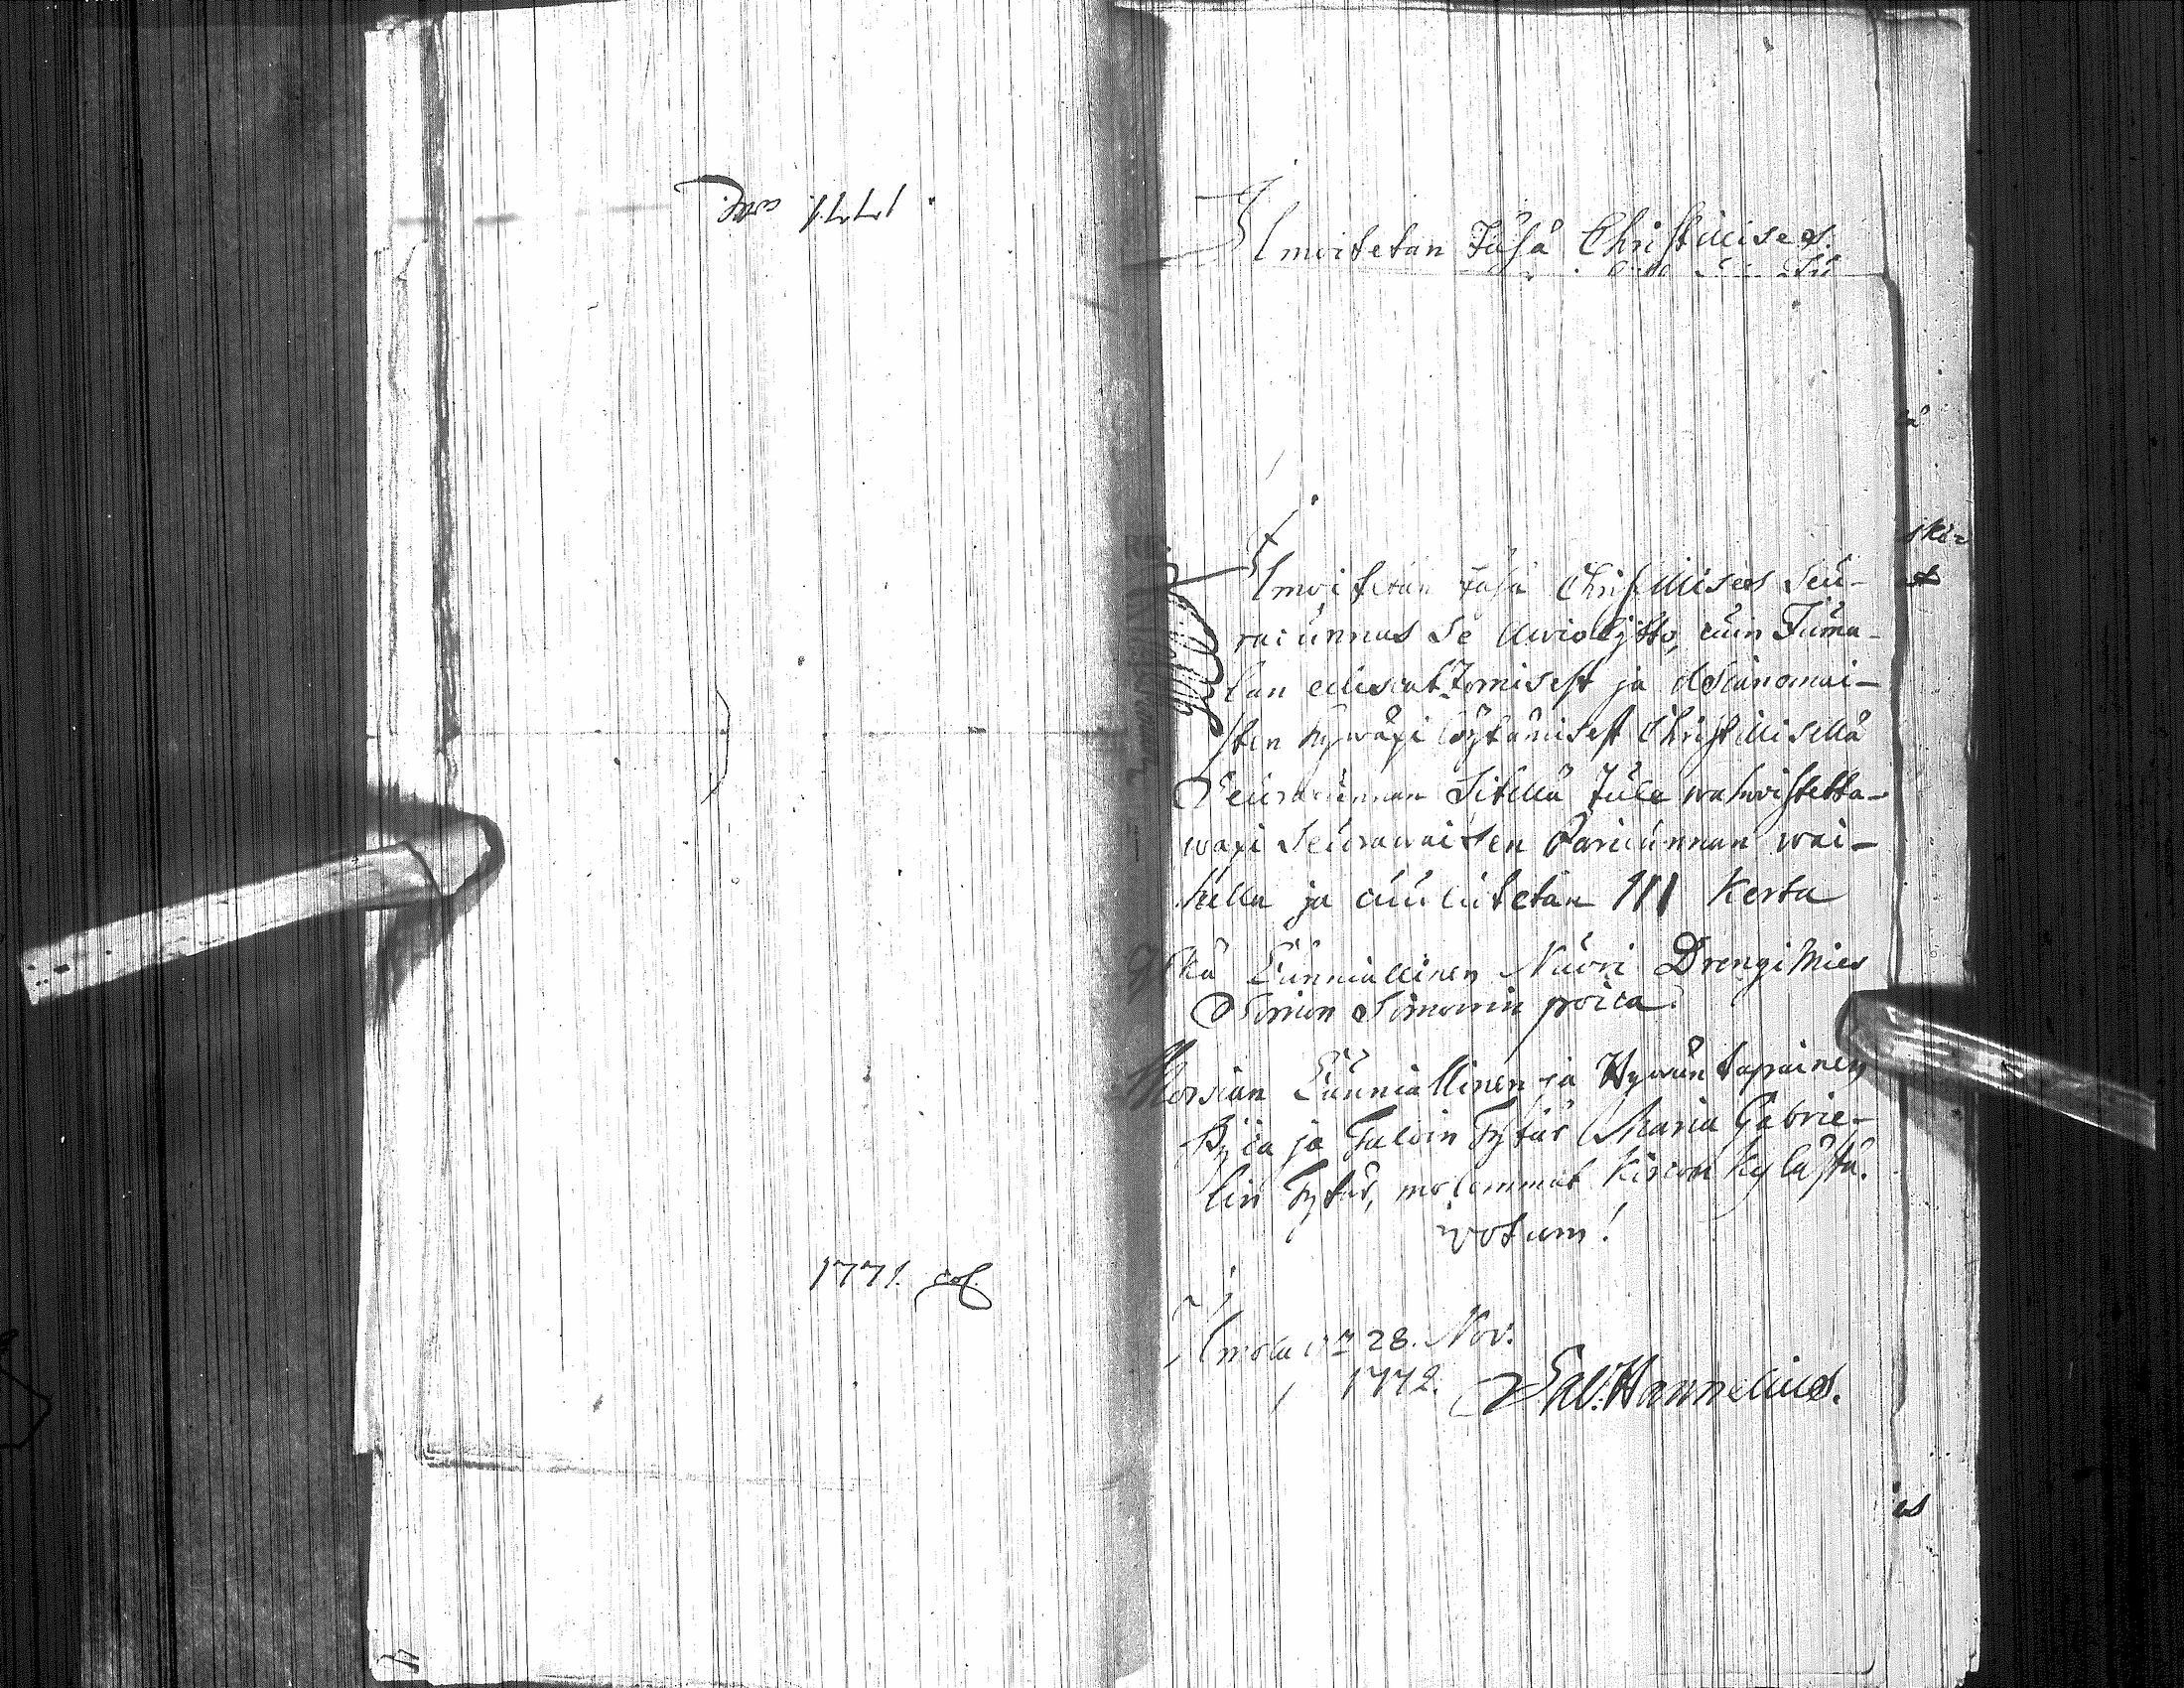 1771.
1771.
Ilmoitetan täsä Christilises
Ilmoitetan täsä Christilises Seu-
racunnas Se Awiokäsky, cuin Juma-
lan edescatzomisest ja Asianomai-
sten hywäxi löytämisest Christilisellä
Seuracunnan Siteellä tule wahwistetta-
waxi Seurawaisten Pariscunnan wai-
hella ja cuulutetan III Kerta
Ylkä Cunniallinen Nuori Drengi Mies
Simon Simonin poica
Morsian Cunniallinen ja Hywäntapainen
Pijca ja Taloin Tytär Maria Gabrie-
lin Tytär, molemmat Kircon Kylästä.
votum!
Ilmola 28. Nov:
1772. Hannelius.